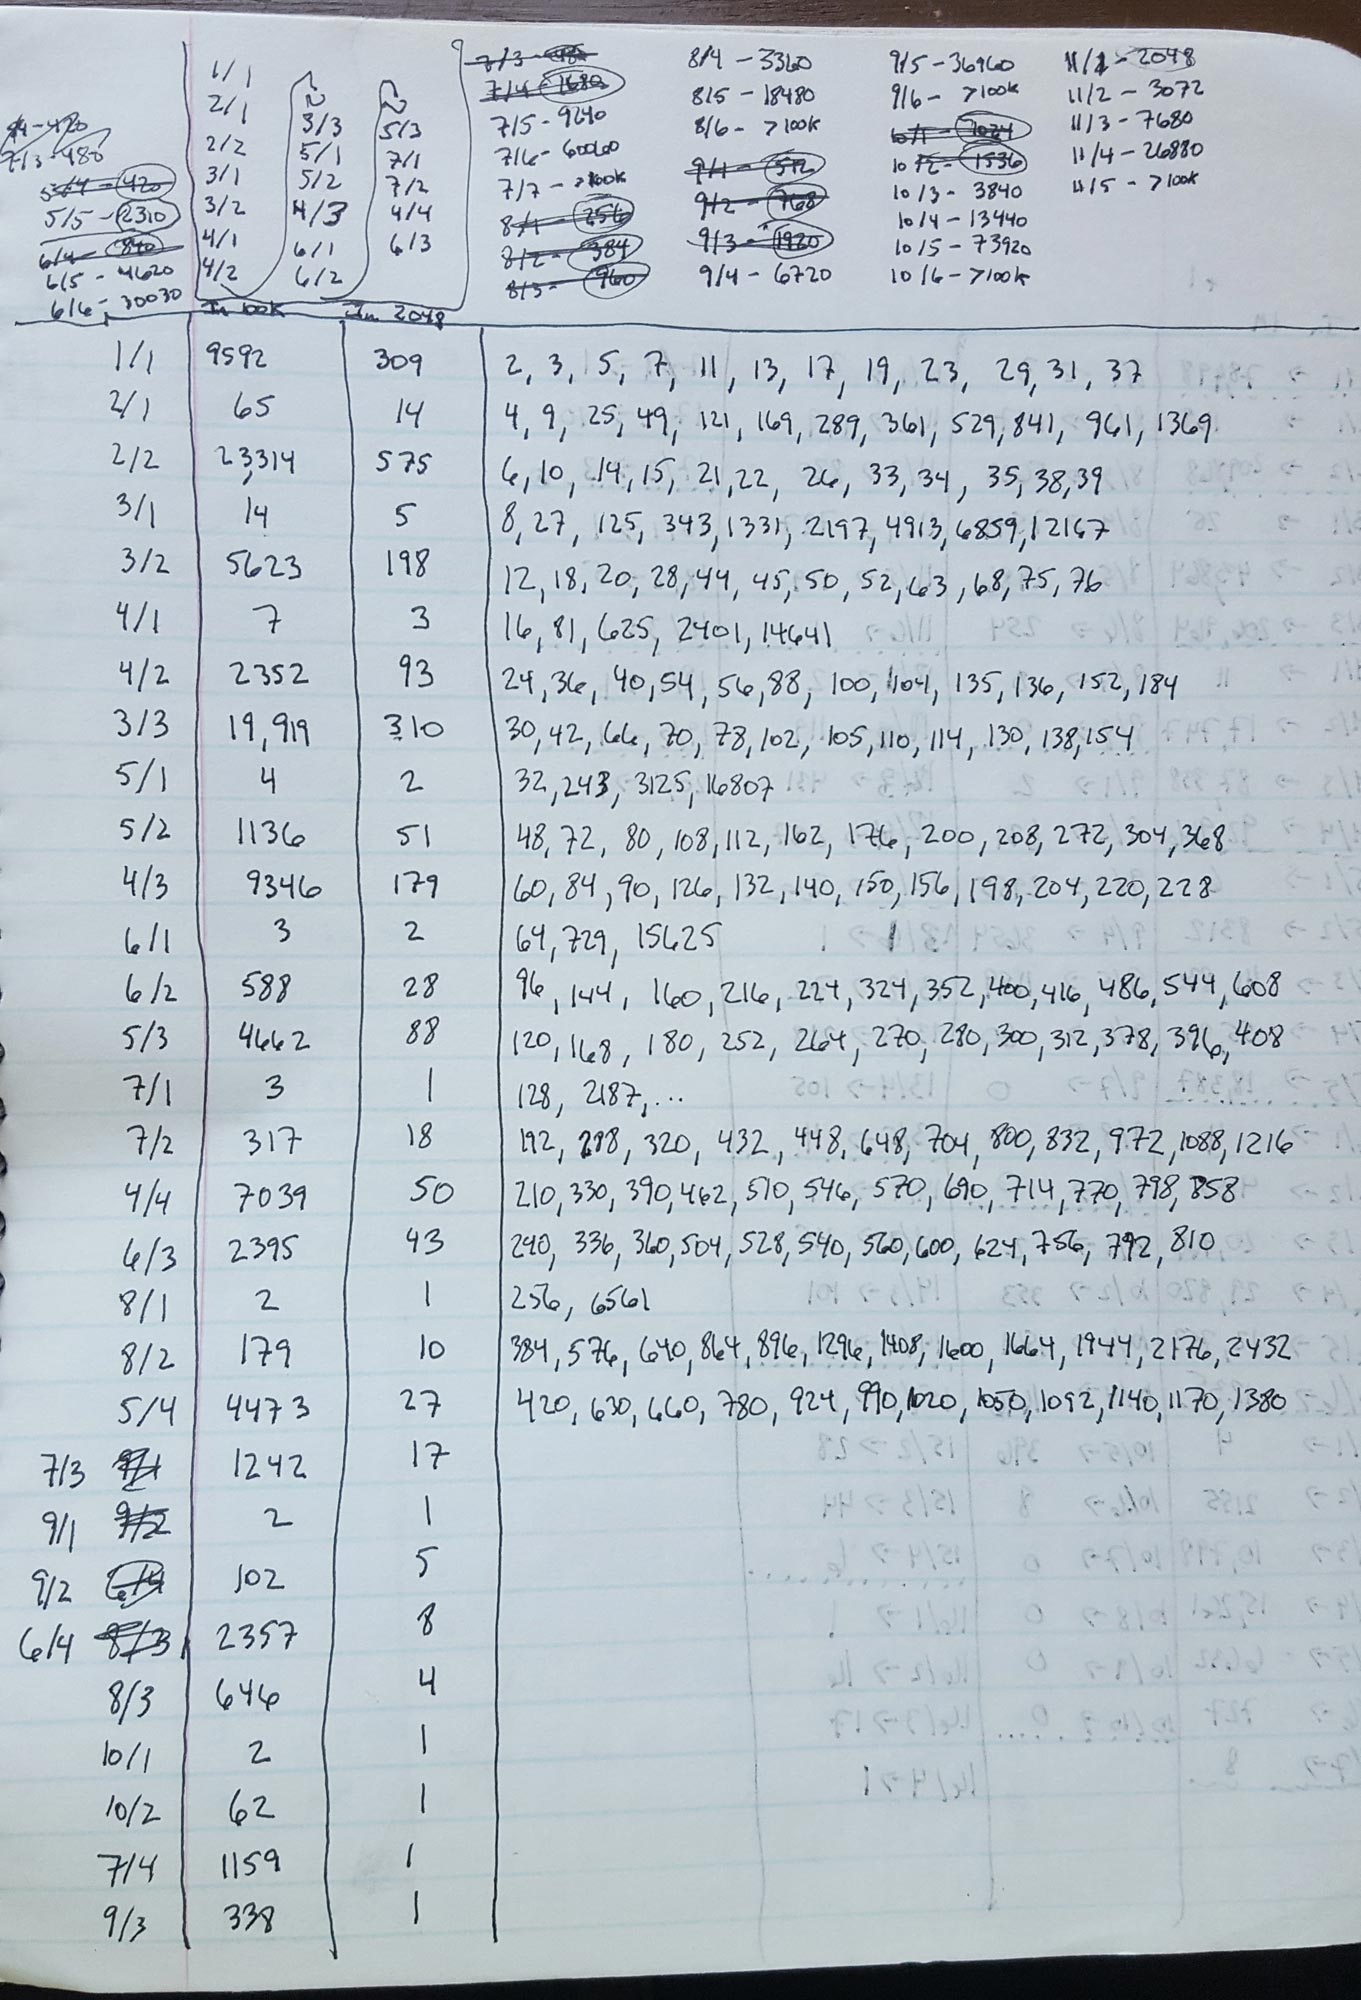 1/1
2/1
2/2
3/1
3/2
4/1
4/2
3/3
5/1
5/2
4/3
6/1
6/2
5/3
7/1
7/2
4/4
6/3
5/4 - 420
7/3 - 480
5/4 - 420
5/5 - 2310
6/4 - 840
6/5 - 4620
6/6 - 30030
7/3 - 480
7/4 - 1680
7/5 - 9240
7/6 - 60060
7/7 - >100k
8/1 - 256
8/2 - 384
8/3 - 960
8/4 - 3360
8/5 - 18480
8/6 - >100k
9/1 - 512
9/2 - 768
9/3 - 1920
9/4 - 6720
9/5 - 36960
9/6 - >100k
10/1 - 1024
10/2 - 1536
10/3 - 3840
10/4 - 13440
10/5 - 73920
10/6 - >100k
11/1 - 2048
11/2 - 3072
11/3 - 7680
11/4 - 26880
11/5 - >100k
In 100k In 2048
1/1 9592 309 2, 3, 5, 7, 11, 13, 17, 19, 23, 29, 31, 37
2/1 65 14 4, 9, 25, 49, 121, 169, 289, 361, 529, 841, 961, 1369
2/2 23,314 575 6, 10, 14, 15, 21, 22, 26, 33, 34, 35, 38, 39
3/1 14 5 8, 27, 125, 343, 1331, 2197, 4913, 6859, 12167
3/2 5623 198 12, 18, 20, 28, 44, 45, 50, 52, 63, 68, 75, 76
4/1 7 3 16, 81, 625, 2401, 14641
4/2 2352 93 24, 36, 40, 54, 56, 88, 100, 104, 135, 136, 152, 184
3/3 19,919 310 30, 42, 66, 70, 78, 102, 105, 110, 114, 130, 138, 154
5/1 4 2 32, 243, 3125, 16807
5/2 1136 51 48, 72, 80, 108, 112, 162, 176, 200, 208, 272, 304, 368
4/3 9346 179 60, 84, 90, 126, 132, 140, 150, 156, 198, 204, 220, 228
6/1 3 2 64, 729, 15625
6/2 588 28 96, 144, 160, 216, 224, 324, 352, 400, 416, 486, 544, 608
5/3 4662 88 120, 168, 180, 252, 264, 270, 280, 300, 312, 378, 396, 408
7/1 3 1 128, 2187, ...
7/2 317 18 192, 288, 320, 432, 448, 648, 704, 800, 832, 972, 1088, 1216
4/4 7039 50 210, 330, 390, 462, 510, 546, 570, 690, 714, 770, 798, 858
6/3 2395 43 240, 336, 360, 504, 528, 540, 560, 600, 624, 756, 792, 810
8/1 2 1 256, 6561
8/2 179 10 384, 576, 640, 864, 896, 1296, 1408, 1600, 1664, 1944, 2176, 2432
5/4 4473 27 420, 630, 660, 780, 924, 990, 1020, 1050, 1092, 1140, 1170, 1380
7/3 1242 17
9/1 2 1
9/2 102 5
6/4 8/3 2357 8
8/3 646 4
10/1 2 1
10/2 62 1
7/4 1159 1
9/3 338 1